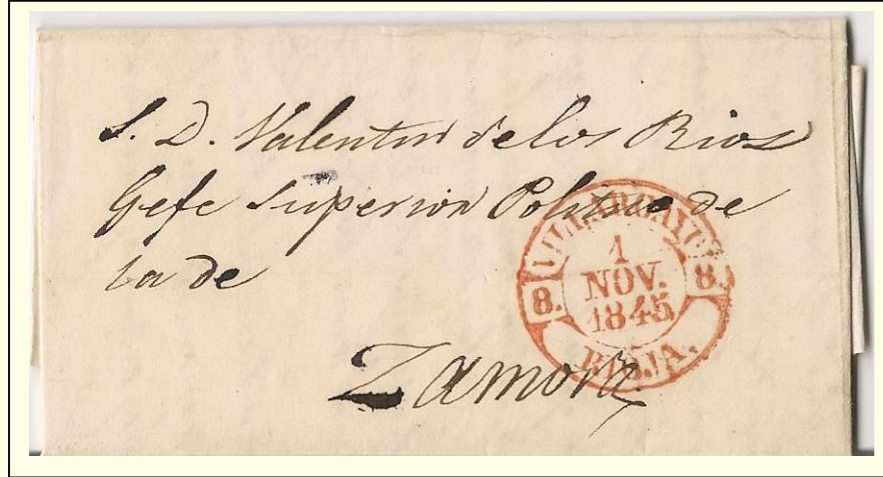 S. D. Valentin de los Rios
Gefe Superior Politico de
la de
Zamora
VILLARCAYO
1
NOV.
1845
8. 8.
RIOJA.